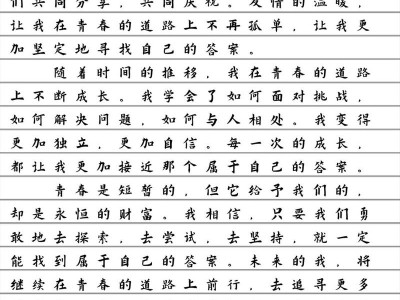 们共同分享，共同庆祝。友情的温暖，
让我在青春的道路上不再孤单，让我更
加坚定地寻找自己的答案。
随着时间的推移，我在青春的道路
上不断成长。我学会了如何面对挑战，
如何解决问题，如何与人相处。我变得
更加独立，更加自信。每一次的成长，
都让我更加接近那个属于自己的答案。
青春是短暂的，但它给予我们的，
却是永恒的财富。我相信，只要我们勇
敢地去探索，去尝试，去坚持，就一定
能找到属于自己的答案。未来的我，将
继续在青春的道路上前行，去追寻更多